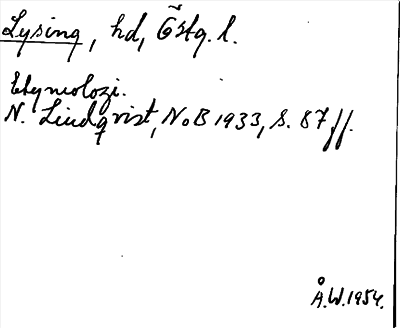 Lysing, hd, Östg. l.
Etymologi.
N. Lindqvist, NoB 1933, s. 87 ff.
Å.W. 1954.